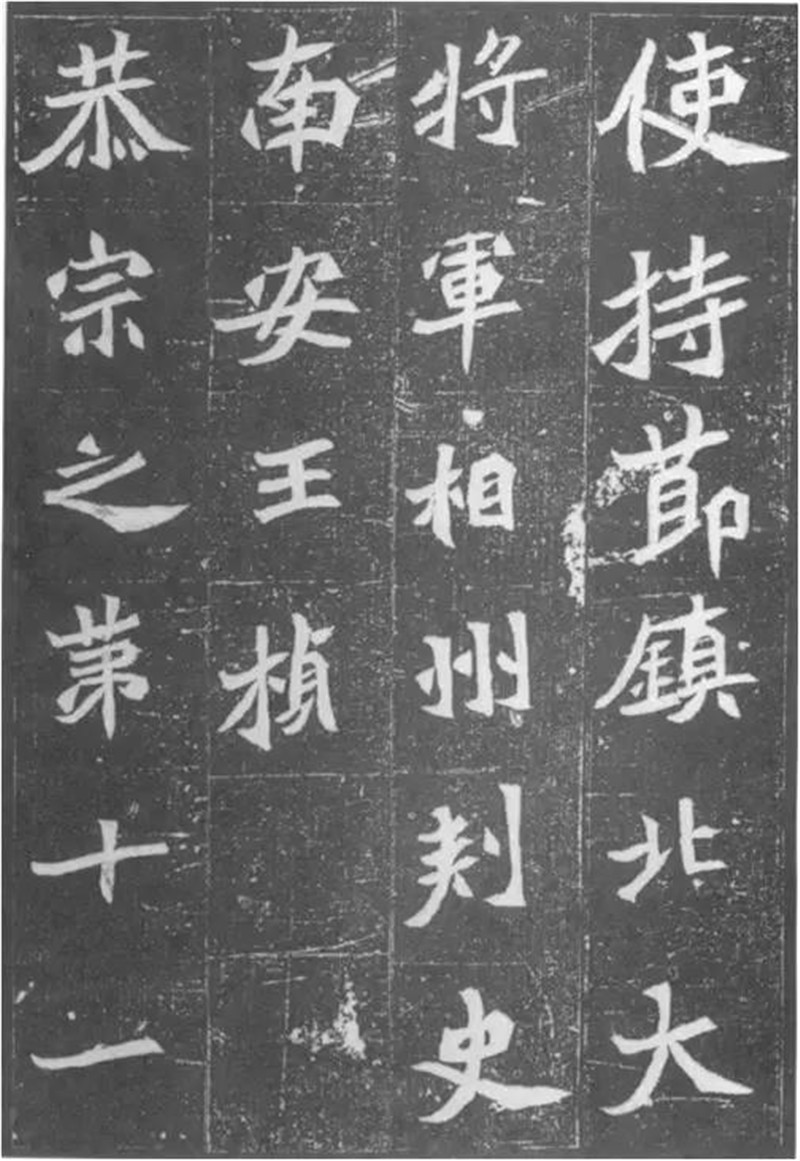 使持節鎮北大
將軍相州刾史
南安王楨
恭宗之苐十一